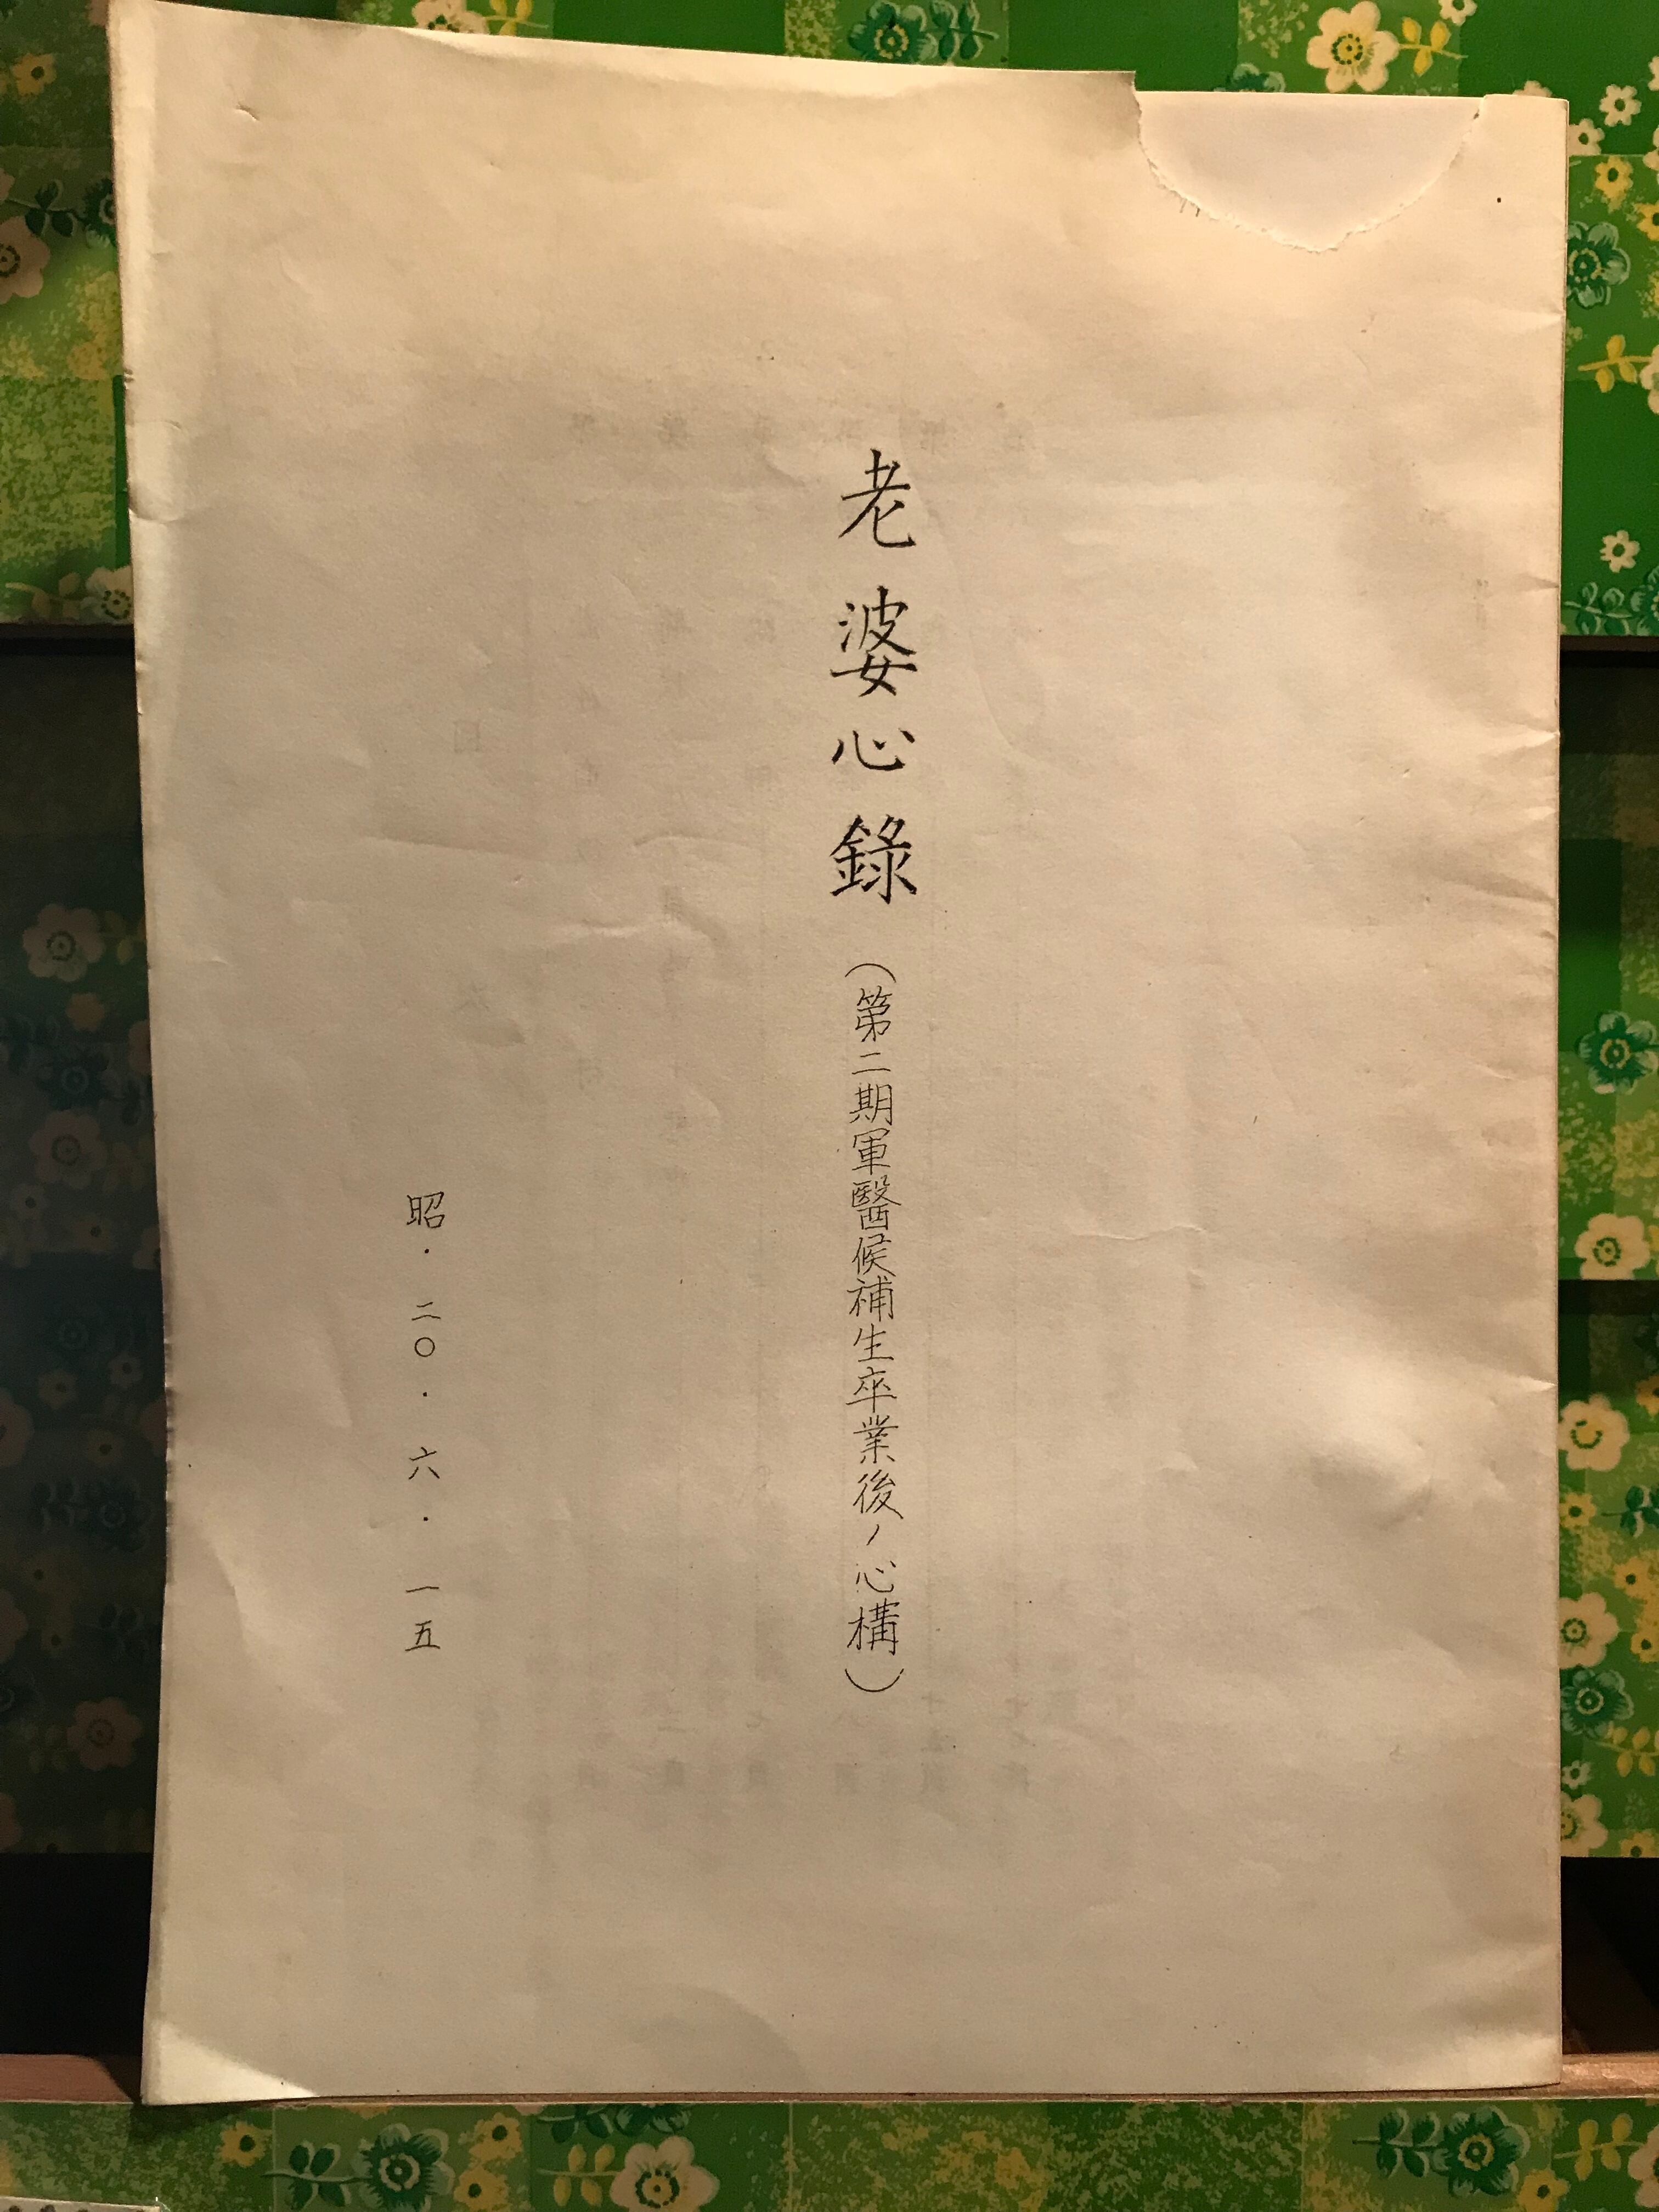 老婆心錄（第二期軍醫候補生卒業後ノ心構）
昭・二〇・六・一五